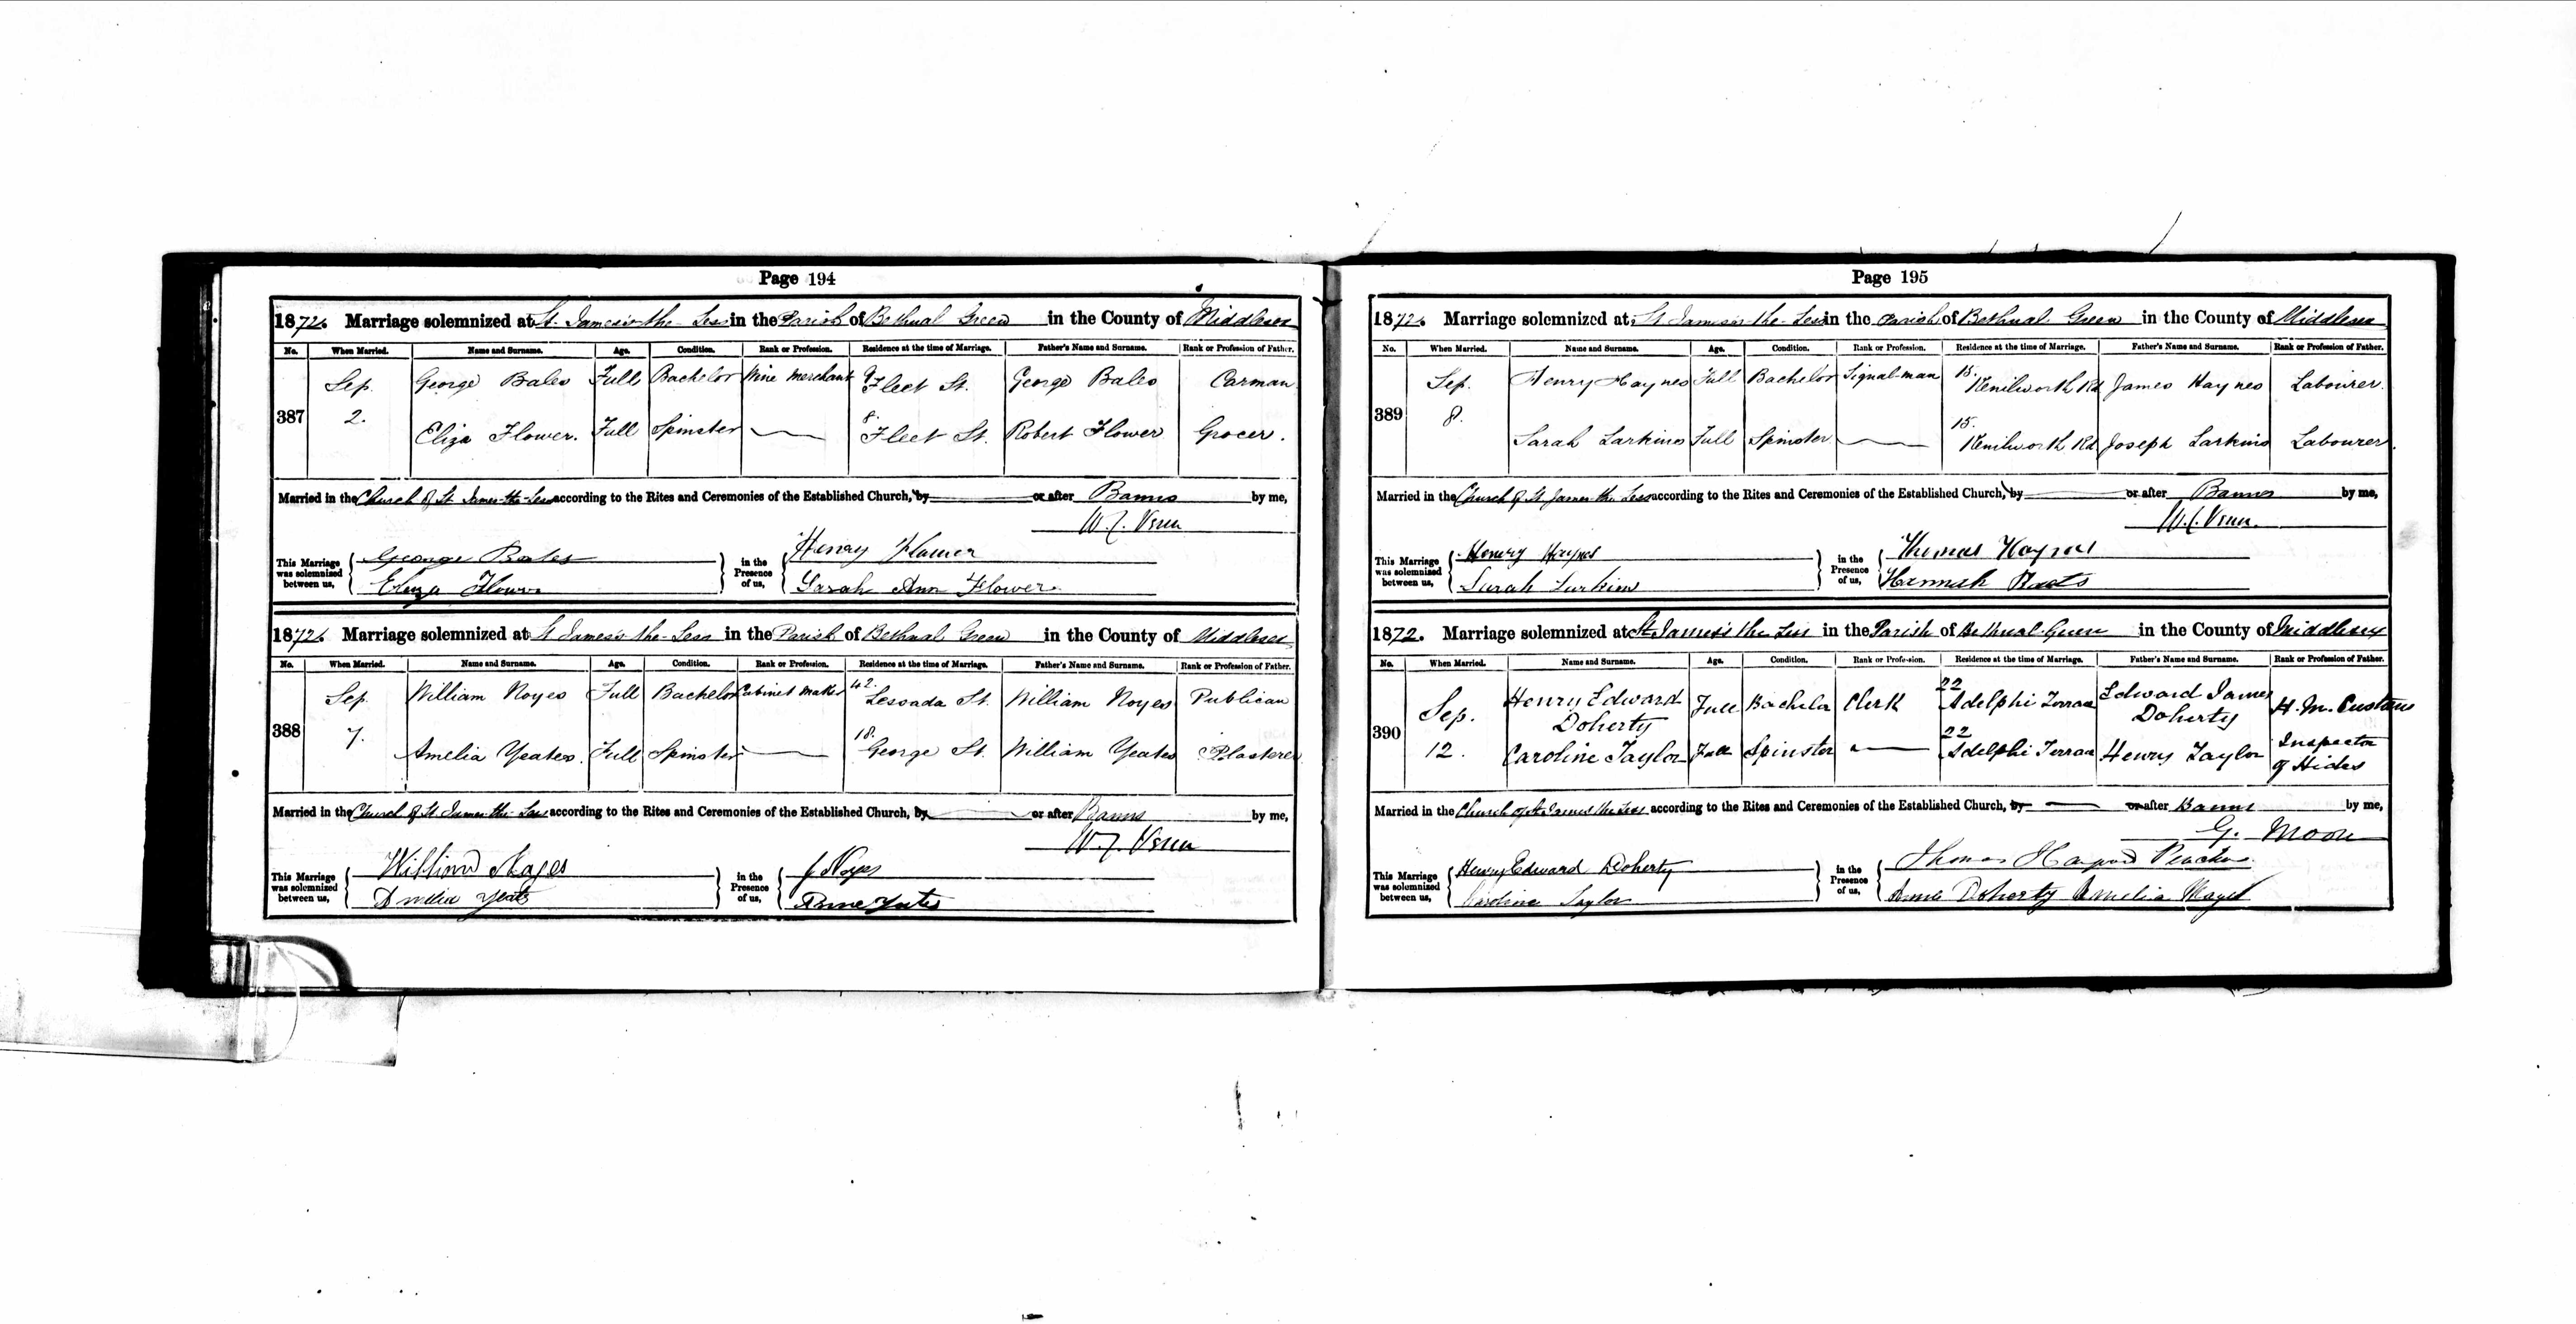 Page 194
1872. Marriage solemnized at St. James's-the-Less in the Parish of Bethnal Green in the County of Middlesex
No. When Married. Name and Surname. Age. Condition. Rank or Profession. Residence at the time of Marriage. Father's Name and Surname. Rank or Profession of Father.
387 Sep. 2. George Bales Full Bachelor Wine Merchant Fleet St. George Bales Carman
Eliza Flower. Full Spinster 8. Fleet St. Robert Flower Grocer.
Married in the Church of St James-the-Less according to the Rites and Ceremonies of the Established Church, by or after Banns by me,
W. Venn
This Marriage was solemnized between us, George Bales Eliza Flower in the Presence of us, Henry Flower Sarah Ann Flower
1872. Marriage solemnized at St James's-the-Less in the Parish of Bethnal Green in the County of Middlesex
No. When Married. Name and Surname. Age. Condition. Rank or Profession. Residence at the time of Marriage. Father's Name and Surname. Rank or Profession of Father.
388 Sep. 7. William Noyes Full Bachelor Cabinet Maker 42. St. William Noyes Publican
Amelia Yeates. Full Spinster 18. George St. William Yeates Plasterer
Married in the Church of St James-the-Less according to the Rites and Ceremonies of the Established Church, by or after Banns by me,
W. Venn
This Marriage was solemnized between us, William Noyes in the Presence of us, J Noyes
Page 195
1872. Marriage solemnized at St James's-the-Less in the Parish of Bethnal Green in the County of Middlesex
No. When Married. Name and Surname. Age. Condition. Rank or Profession. Residence at the time of Marriage. Father's Name and Surname. Rank or Profession of Father.
389 Sep. 8. Henry Haynes Full Bachelor Signal-man 15. Kenilworth Rd James Haynes Labourer.
Sarah Larkins Full Spinster 15. Kenilworth Rd Joseph Larkins Labourer
Married in the Church of St James-the-Less according to the Rites and Ceremonies of the Established Church, by or after Banns by me,
W. Venn.
This Marriage was solemnized between us, Henry Haynes Sarah Larkins in the Presence of us, Thomas Haynes Hannah
1872. Marriage solemnized at St James's the Less in the Parish of Bethnal Green in the County of Middlesex
No. When Married. Name and Surname. Age. Condition. Rank or Profession. Residence at the time of Marriage. Father's Name and Surname. Rank or Profession of Father.
390 Sep. 12. Henry Edward Doherty Full Bachelor Clerk 22 Adelphi Terrace Edward James Doherty H. M. Customs
Caroline Taylor Full Spinster 22 Adelphi Terrace Henry Taylor Inspector of Hides
Married in the Church of St James the Less according to the Rites and Ceremonies of the Established Church, by or after Banns by me,
G. Moon
This Marriage was solemnized between us, Henry Edward Doherty Caroline Taylor in the Presence of us, Thomas Doherty Amelia